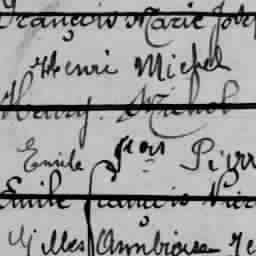 François Marie Josep
Henri Michel
Henry. Michel
Emile fcois Pierr
Emile francois Pier
Gilles Ambroise Je